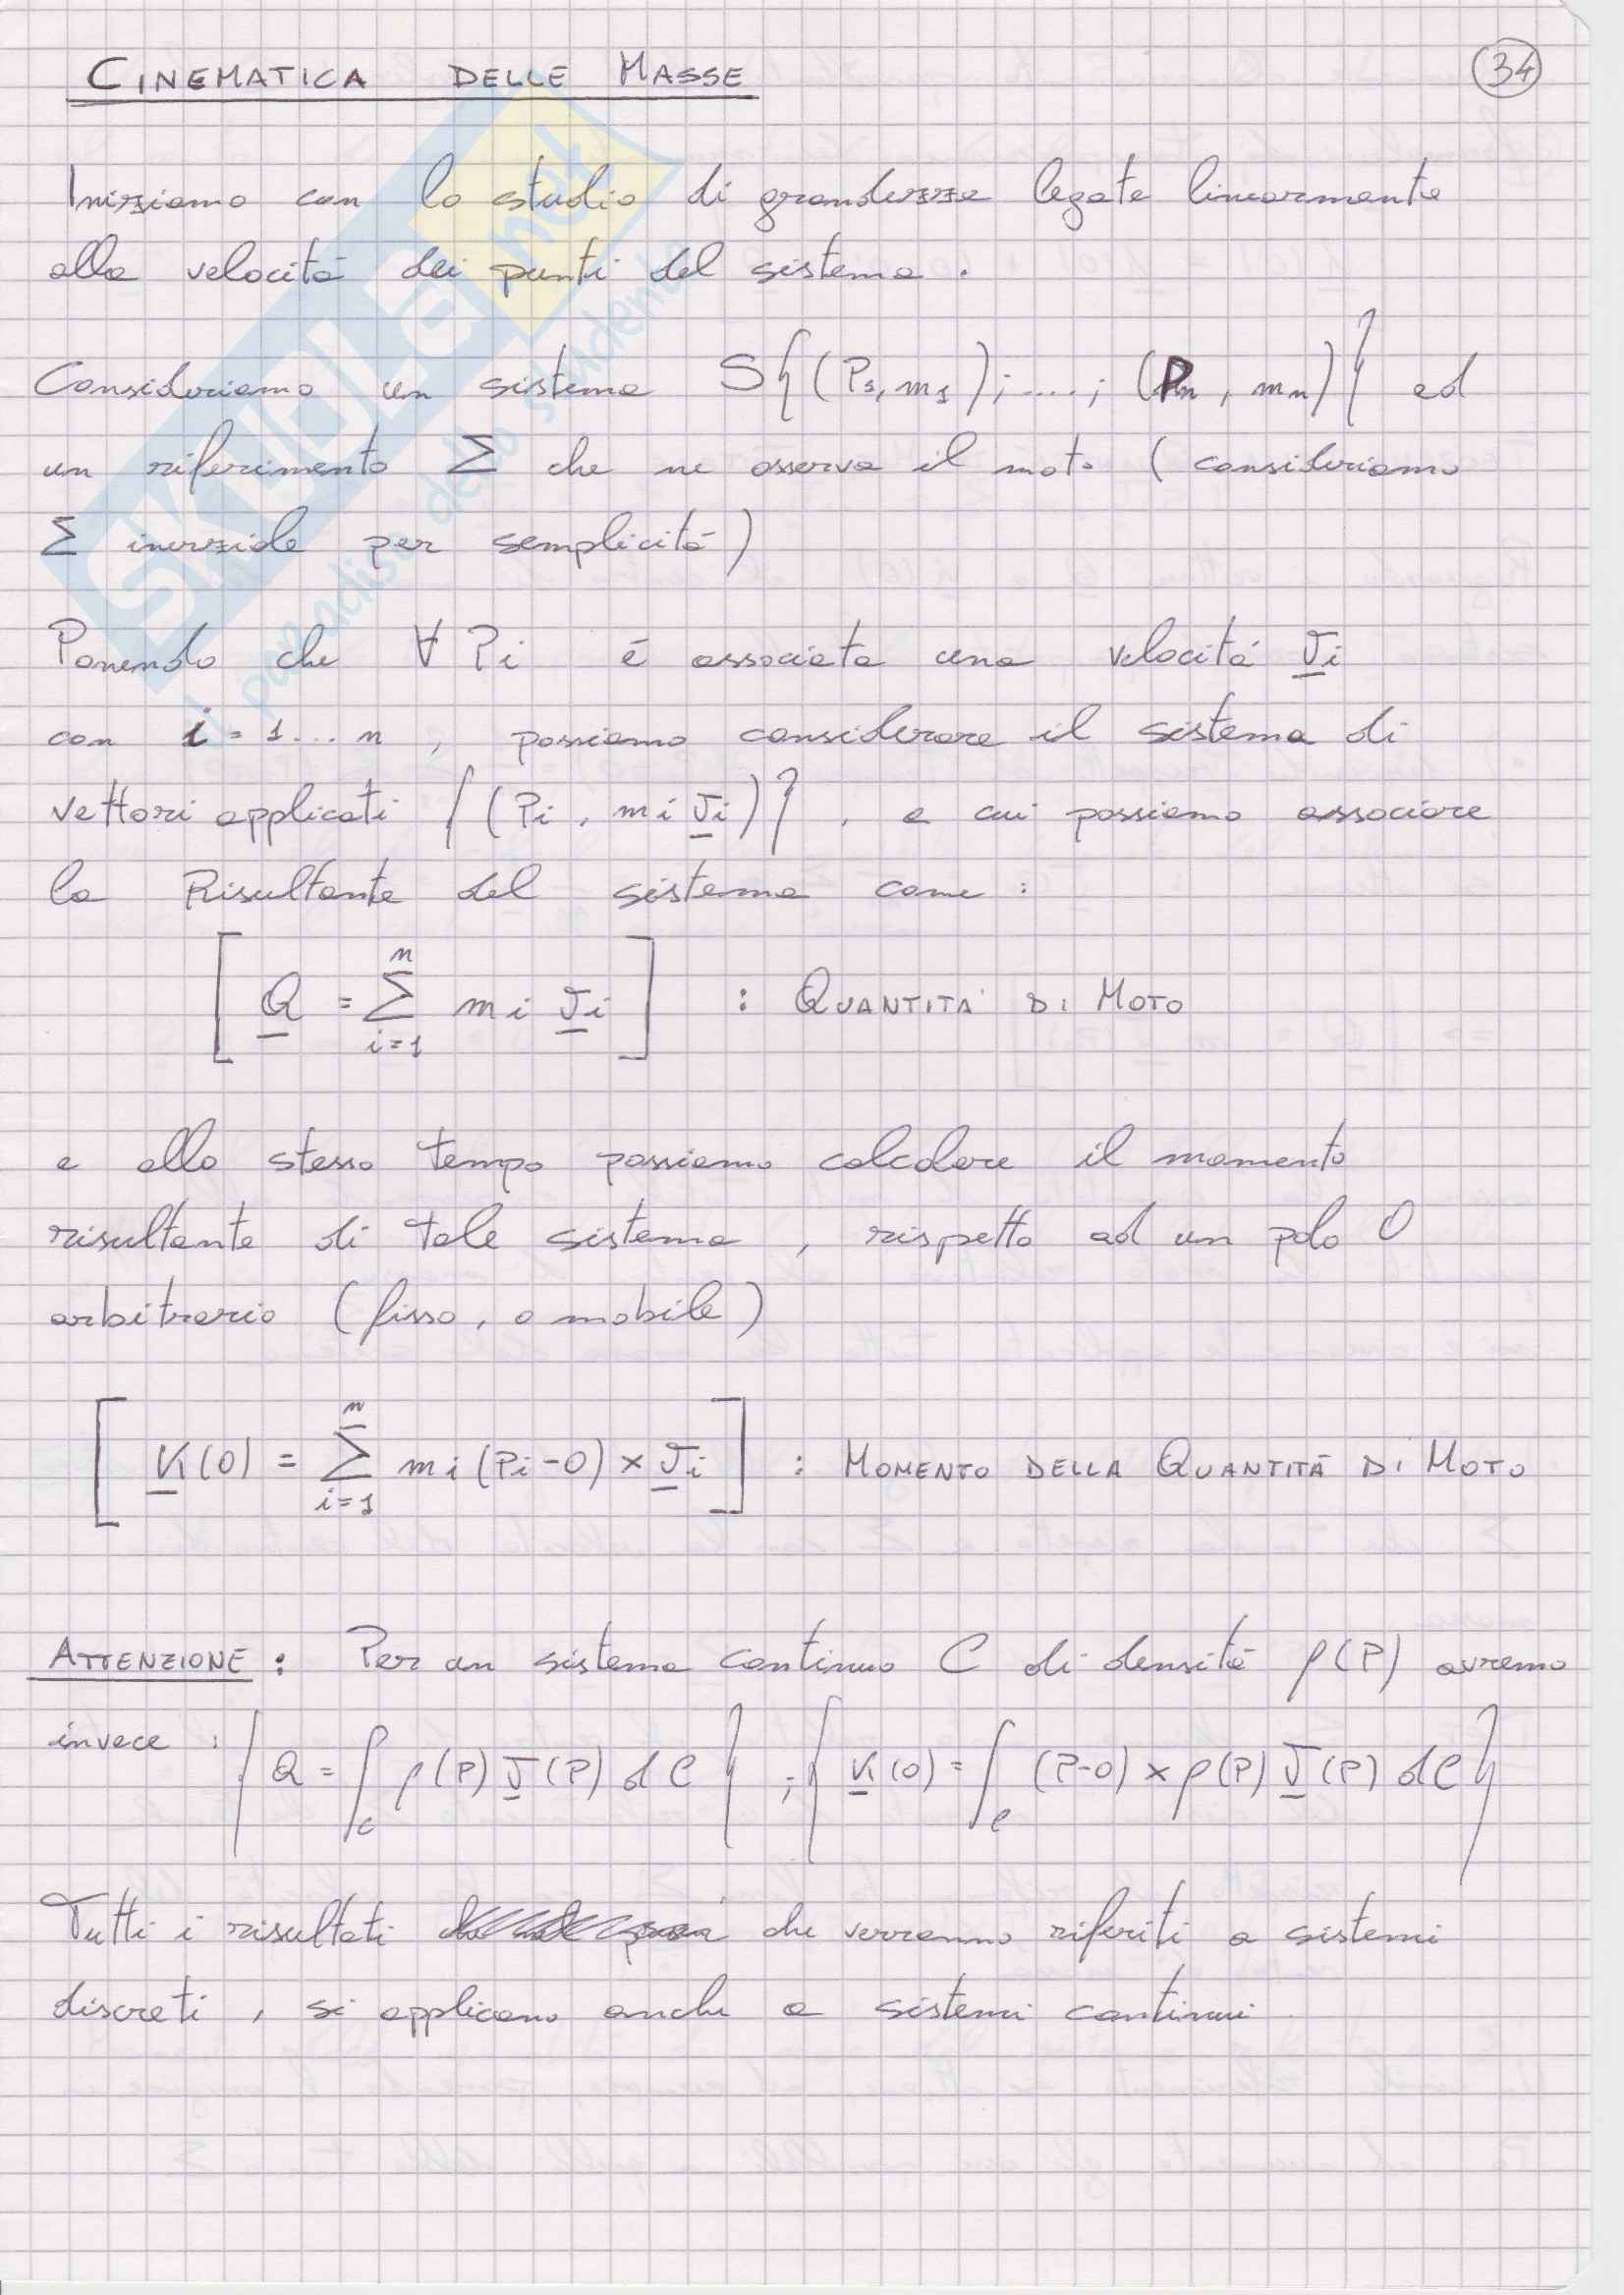 CINEMATICA DELLE MASSE
34
Iniziamo con lo studio di grandezze legate linearmente
alla velocità dei punti del sistema .
Consideriamo un sistema S{(P1, m1); ....; (Pn, mn)} ed
un riferimento Σ che ne osserva il moto ( consideriamo
Σ inerziale per semplicità )
Ponendo che ∀ Pi è associata una velocità v̲i
con i = 1 ... n , possiamo considerare il sistema di
vettori applicati {(Pi, mi v̲i)} , a cui possiamo associare
la Risultante del sistema come :
[ Q̲ = Σ_{i=1}^{n} mi v̲i ] : QUANTITA' DI MOTO
e allo stesso tempo possiamo calcolare il momento
risultante di tale sistema , rispetto ad un polo O
arbitrario ( fisso , o mobile )
[ K̲(O) = Σ_{i=1}^{n} mi (Pi-O) × v̲i ] : MOMENTO DELLA QUANTITÀ DI MOTO
ATTENZIONE : Per un sistema continuo C di densità ρ(P) avremo
invece : { Q = ∫_C ρ(P) v̲(P) dC } ; { K̲(O) = ∫_C (P-O) × ρ(P) v̲(P) dC }
Tutti i risultati che verranno riferiti a sistemi
discreti , si applicano anche a sistemi continui
SKUOLA.net
il paradiso dello studente